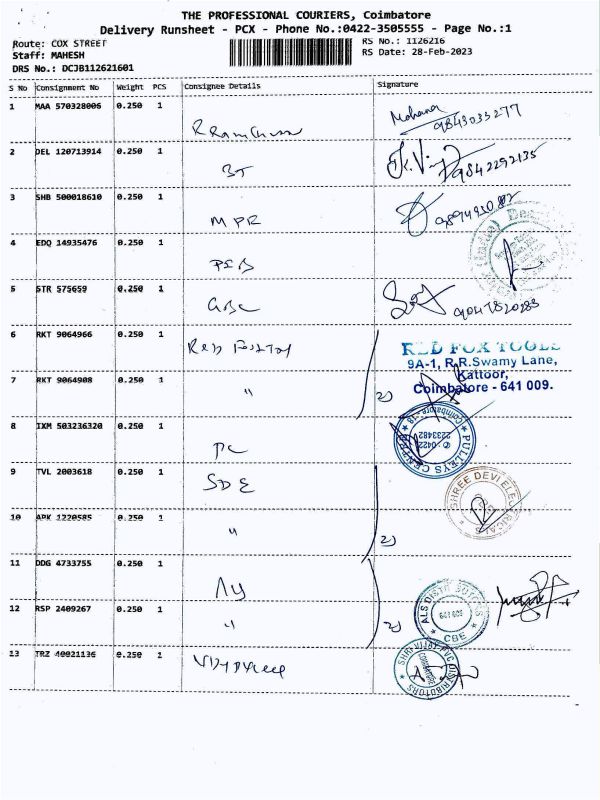 THE PROFESSIONAL COURIERS, Coimbatore
Delivery Runsheet - PCX - Phone No.:0422-3505555 - Page No.:1
Route: COX STREET
RS No.: 1126216
Staff: MAHESH
RS Date: 28-Feb-2023
DRS No.: DCJB112621601
S No Consignment No Weight PCS Consignee Details Signature
1 MAA 570328006 0.250 1
Mohana
9843033277
2 DEL 120713914 0.250 1
BT
9842292135
3 SHB 500018610 0.250 1
MPR
4 EDQ 14935476 0.250 1
5 STR 575659 0.250 1
GBC
9047820283
6 RKT 9064966 0.250 1
RED FOX TOOLS
9A-1, R.R.Swamy Lane,
Kattoor,
Coimbatore - 641 009.
7 RKT 9064908 0.250 1
"
2)
8 IXM 503236320 0.250 1
PC
PULLEYS CENTRE
Coimbatore - 18
0422
2233482
9 TVL 2003618 0.250 1
SDE
SHREE DEVI ELECTRICALS
10 APK 1220585 0.250 1
"
2)
11 DDG 4733755 0.250 1
12 RSP 2409267 0.250 1
"
2)
641 009
CBE
13 TRZ 40021136 0.250 1
PVC DISTRIBUTORS